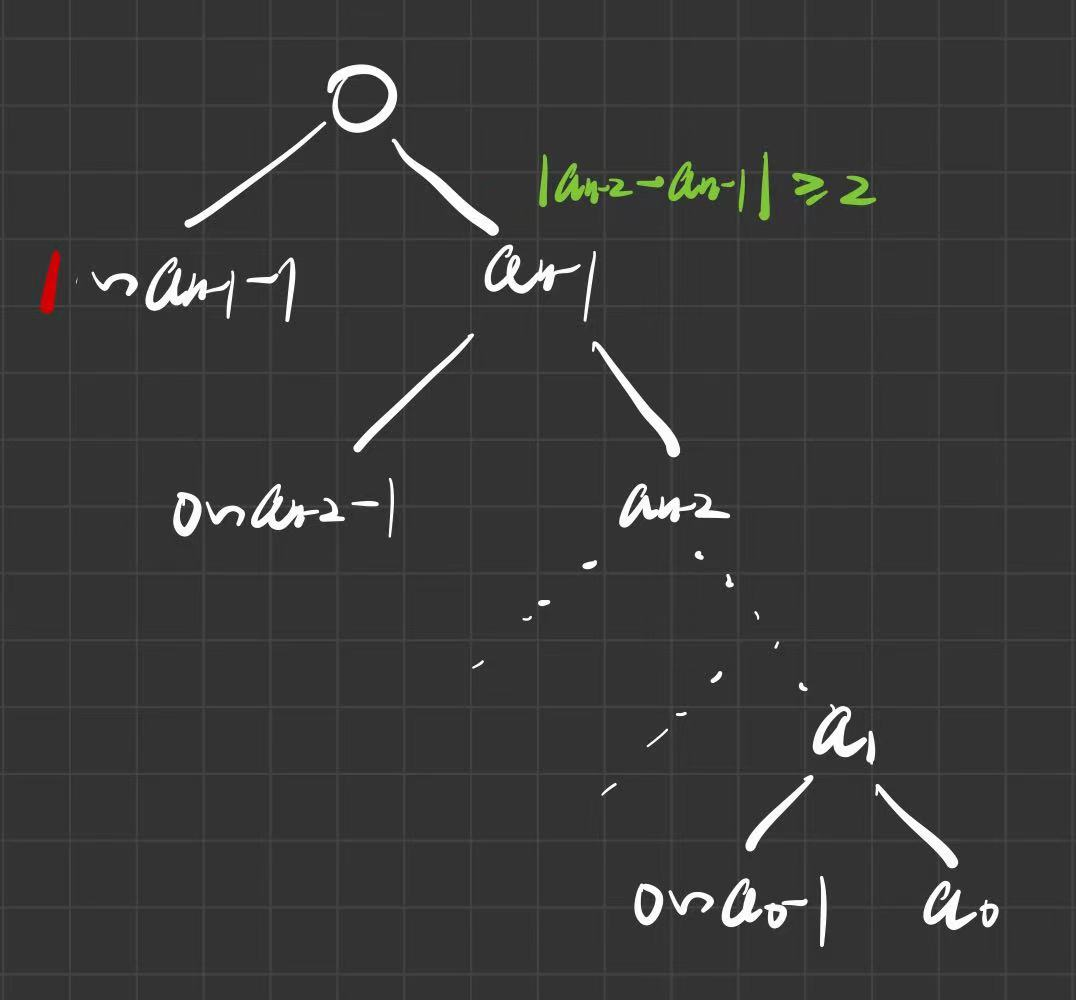 |aₙ₋₂-aₙ₋₁| ≥ 2
1~aₙ₋₁-1
aₙ₋₁
0~aₙ₋₂-1
aₙ₋₂
a₁
0~a₀-1
a₀